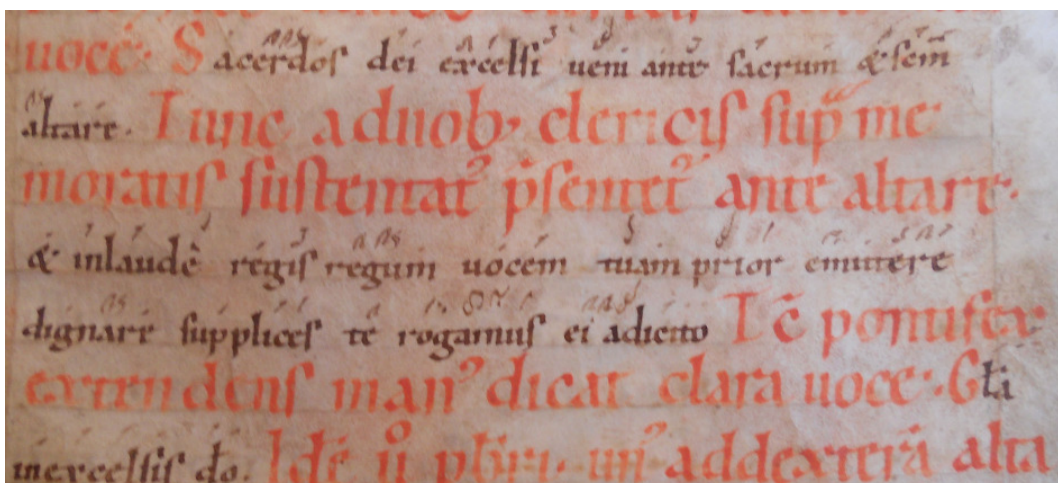 uoce· Sacerdos dei excelsi ueni ante sacrum & sc̄m
altare. Tunc a duob; clericis sup̄ me
moratis sustentat᷒ p̄sentet᷒ ante altare·
& inlaudē regis regum uocem tuam prior emittere
dignare supplices te rogamus ei adicito Tc̄ pontifex
extendens man᷒ dicat clara uoce·. Głi
inexcelsis dō. ad dexterā alta